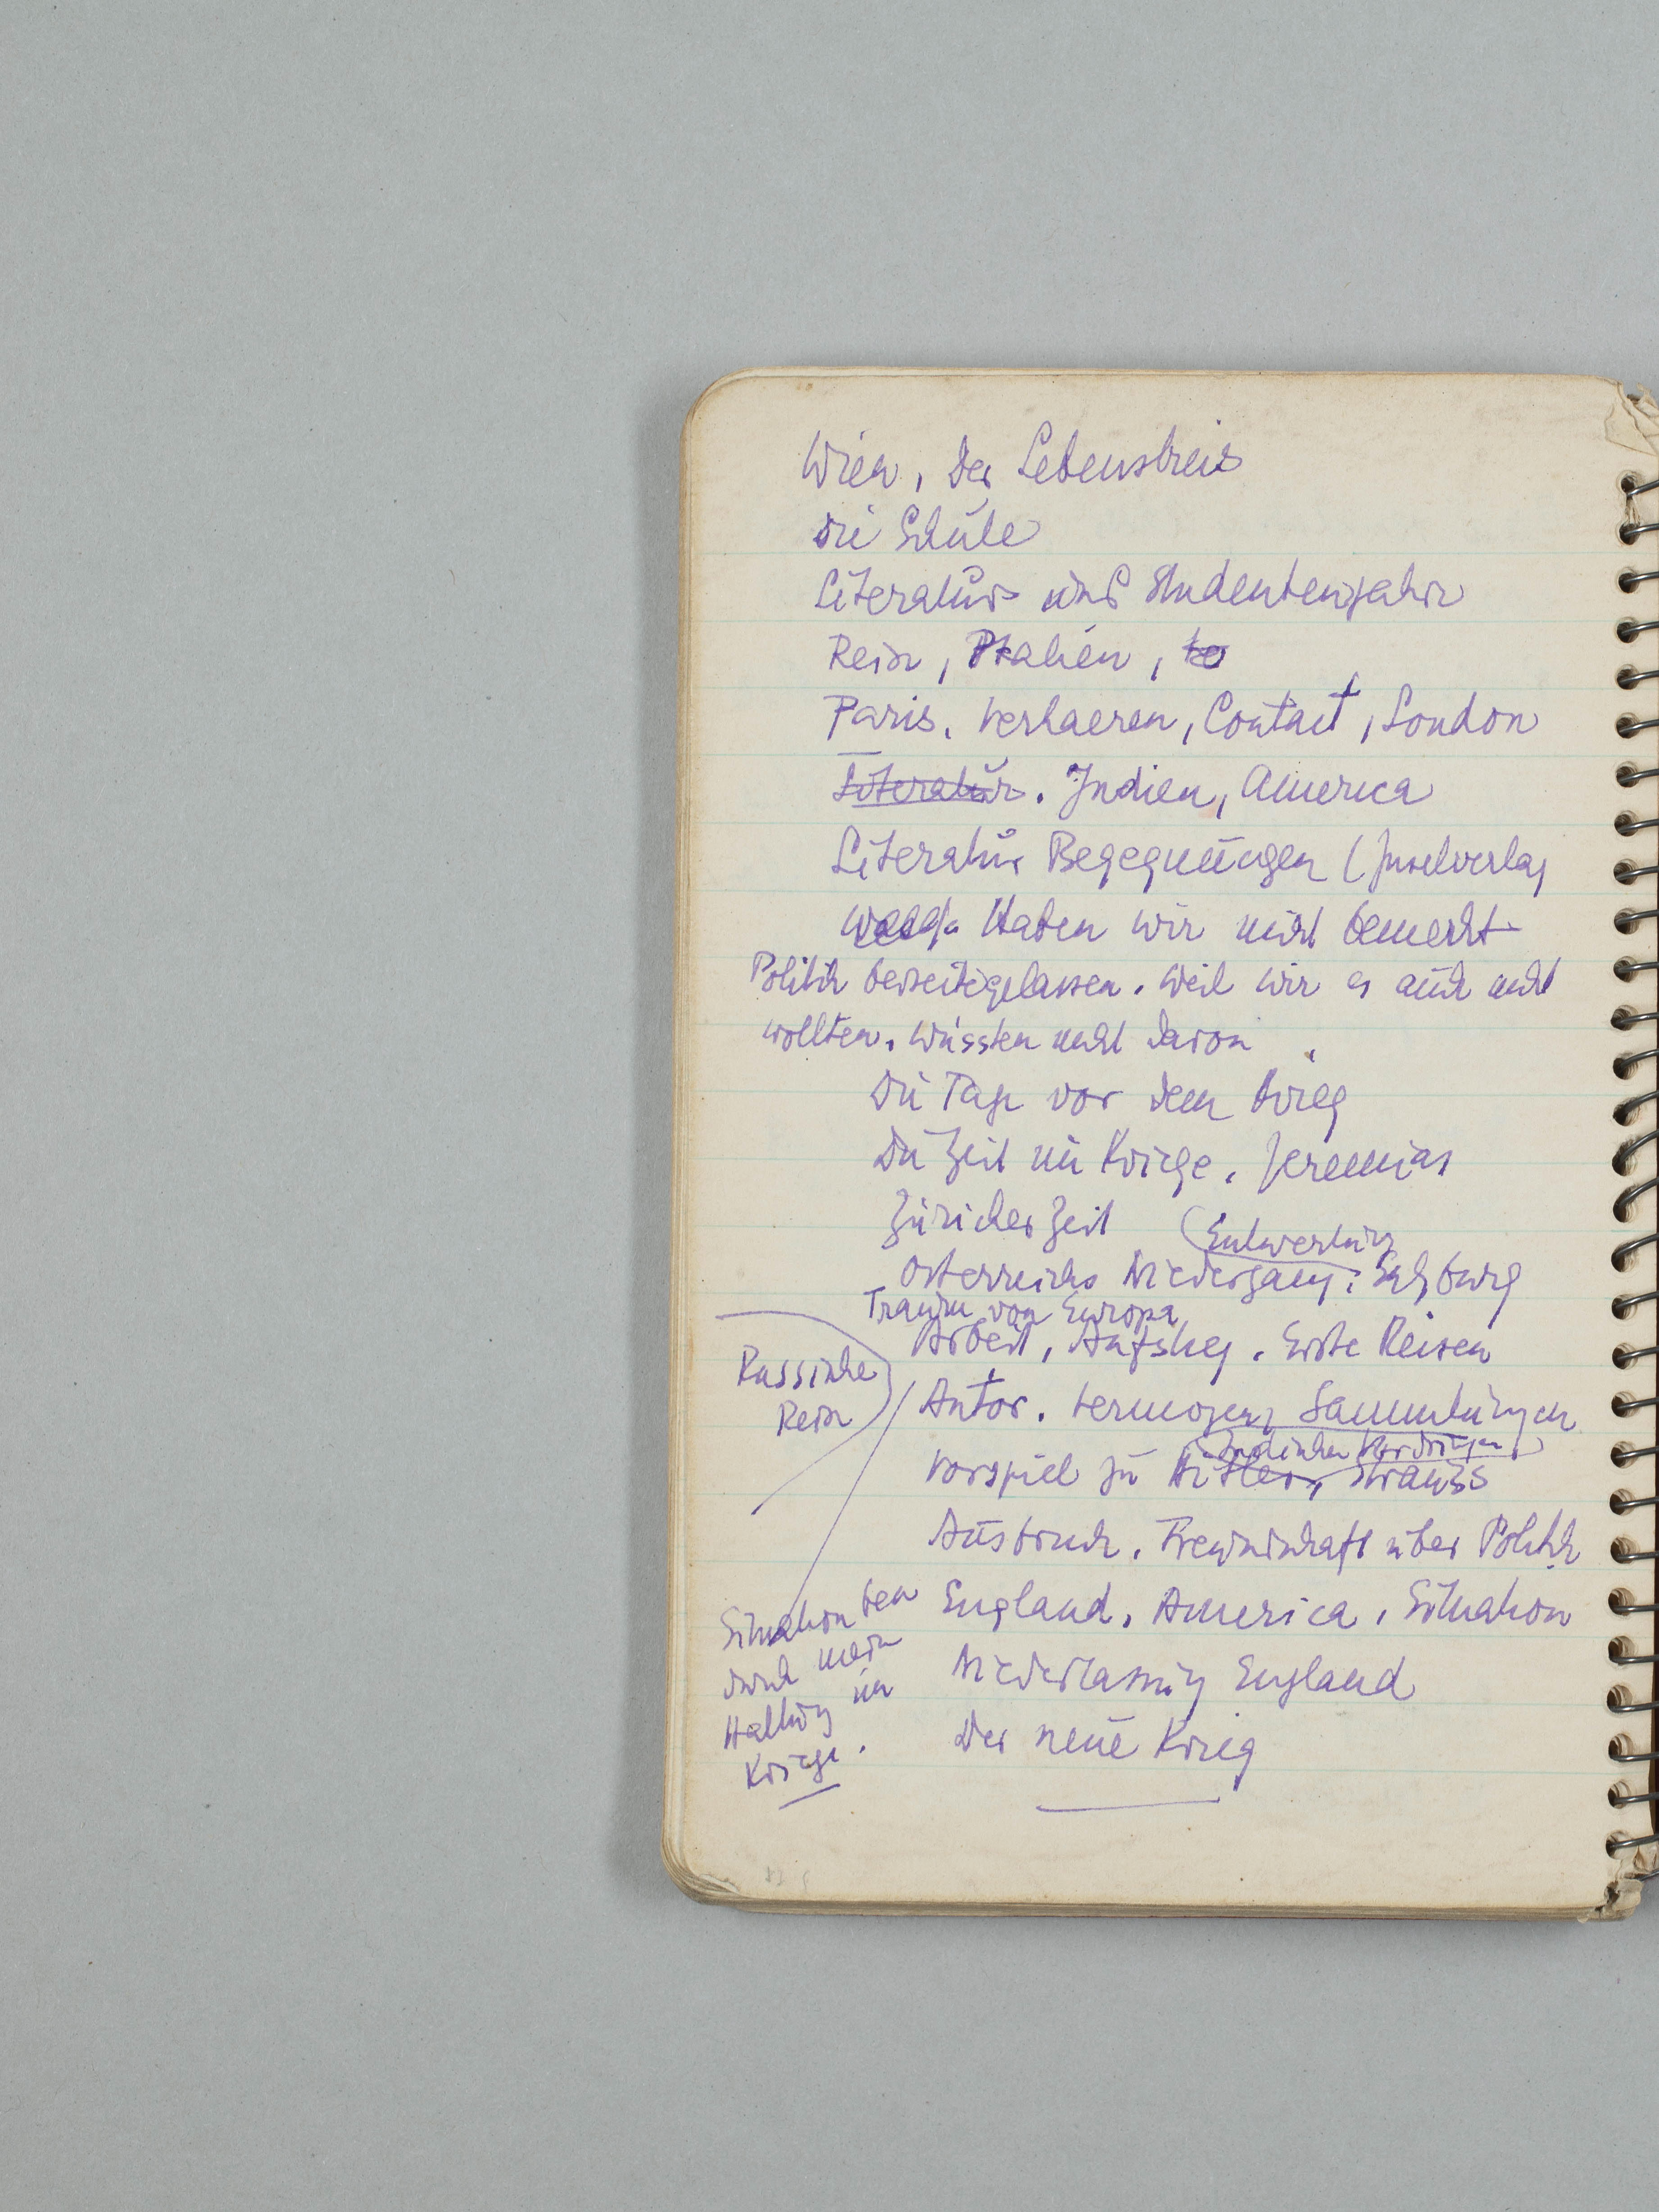 Wien, der Lebenskreis
Die Schule
Literatur und Studentenjahre
Reise, Italien, to
Paris. Verhaeren, Contact, London
Literatur. Indien, America
Literatur Begegnungen (Inselverlag
Haben wir nicht bemerkt
Politik beiseitegelassen. Weil wir es auch nicht
wollten. Wussten nicht davon
Die Tage vor dem Krieg
Die Zeit im Kriege. Jeremias
Züricher Zeit (Entwertung
Österreichs Niedergang. Salzburg
Traum von Europa
Arbeit, Aufstieg. Erste Reisen
Russische
Reise
Autor. Vermögen, Sammlungen
Vorspiel zu Hitler, Strauss
Ausbruch. Freundschaft über Politik
England, America, Situation
Niederlassung England
Der neue Krieg
Situation
durch meine
Haltung im
Kriege.